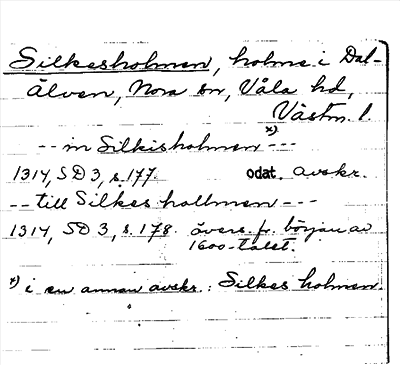 Silkesholmen, holme i Dal-
älven, Nora sn, Våla hd,
Västm. l.
-- in Silkisholmen x) ---
1314, SD 3, s. 177. odat. avskr.
-- till Silkes hallmen ---
1314, SD 3, s. 178. övers. fr. början av
1600-talet.
x) i en annan avskr.: Silkes holmen.